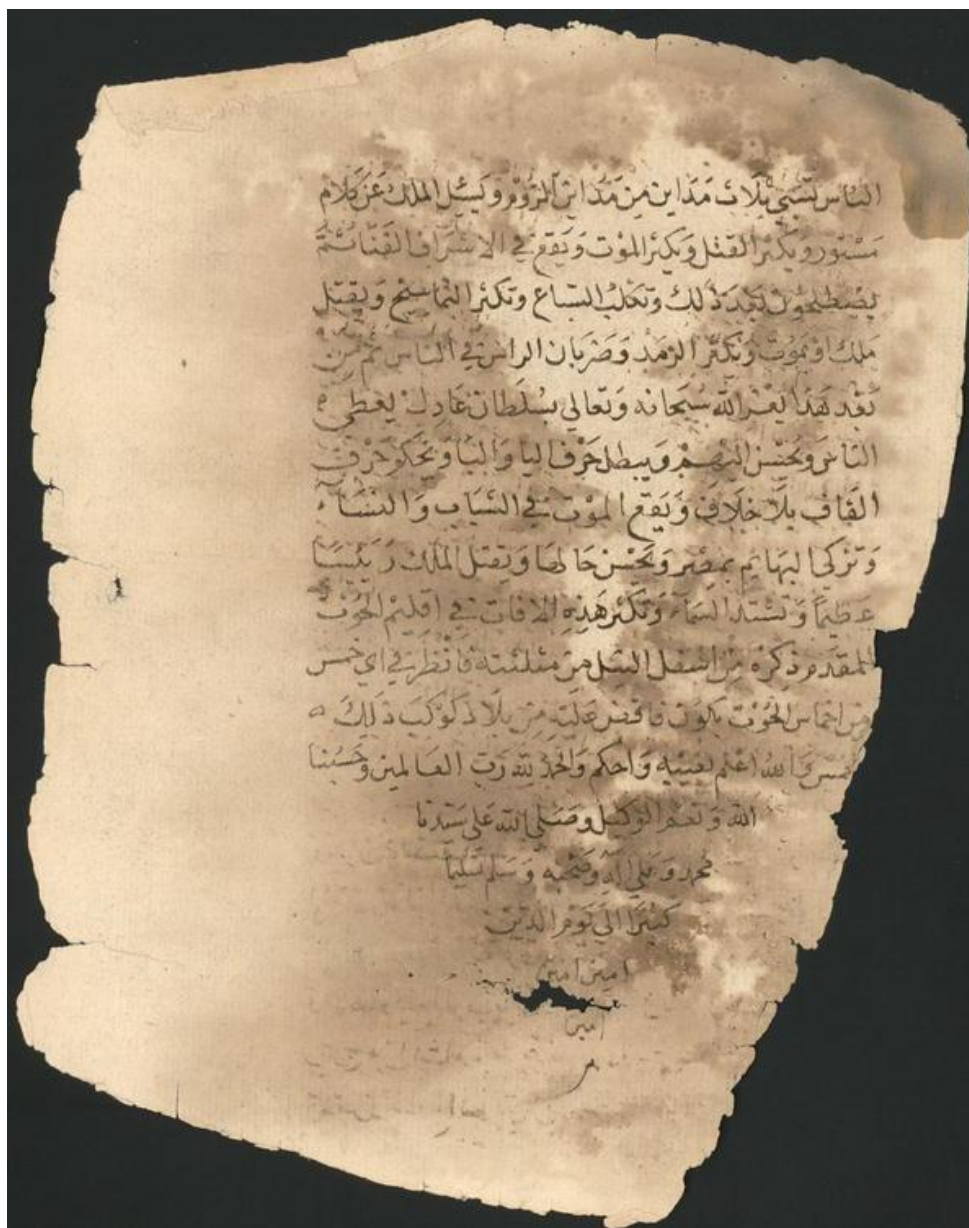 الناس تسبى ثلاث مداين من مداين الروم ويسئل الملك عن كلام
مستور ويكثر القتل ويكثر الموت ويقع في الاشراف الفنا ثم
يصطلحون بعد ذلك وتغلب السباع وتكثر التماسيح ويقتل
ملك او يموت ويكثر الرمد وضربان الراس في الناس ثم من
بعد هذا الله سبحانه وتعالى بسلطان عادل يعطي
الناس ويحسن اليهم ويبطل حرف اليا والبا ويحكم حرف
القاف بلا خلاف ويقع الموت في الشباب والنساء
وتزكي البهايم بمصر ويحسن حالها ويقتل الملك رئيسا
عظيما وتشتد السماء وتكثر هذه الافات في اقليم الحوت
المقدم ذكره من اسفل النيل من مثلثته فانظر في اي خمس
من اخماس الحوت يكون فاقض عليه من بلاد كوكب ذلك
الخمس والله اعلم بغيبه واحكم والحمد لله رب العالمين وحسبنا
الله ونعم الوكيل وصلى الله على سيدنا
محمد وعلى اله وصحبه وسلم تسليما
كثيرا الى يوم الدين
امين امين
امين